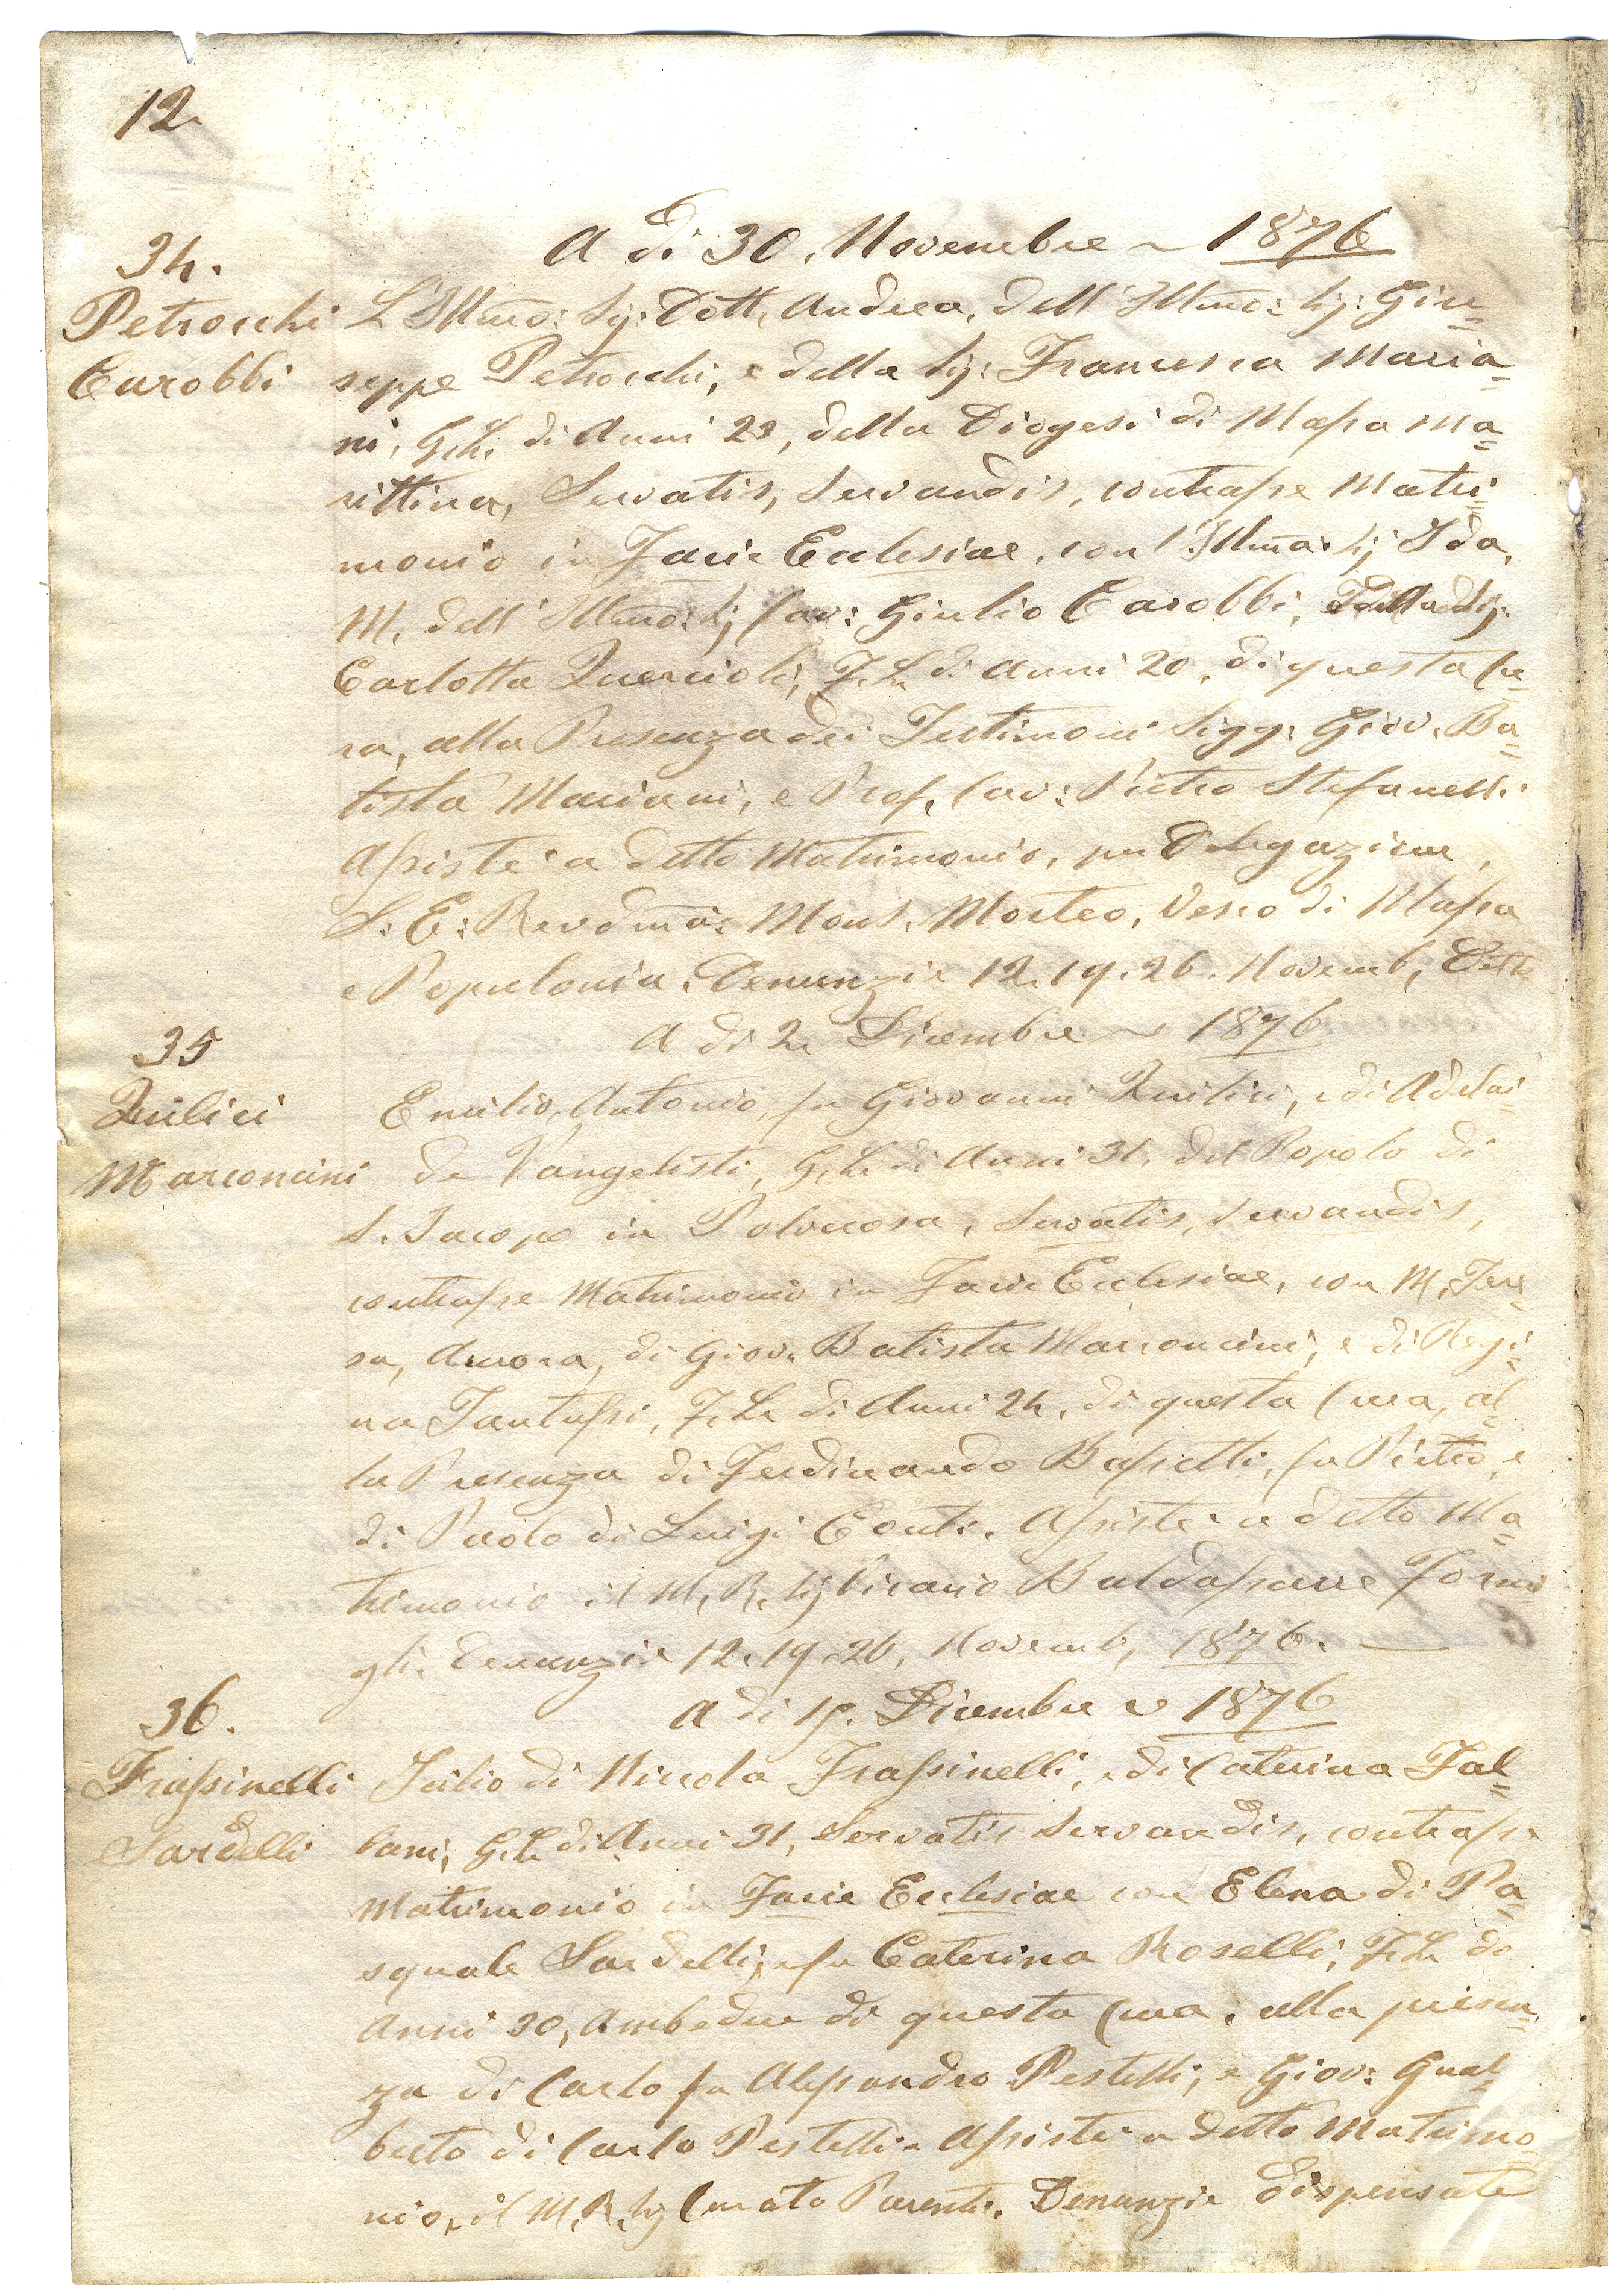 12.
A di 30. Novembre ~ 1876
34.
Petrocchi
Carobbi
L'Illmo: Sig: Dott, Andrea, dell' Illmo: Sig: Giu=
seppe Petrocchi, e della Sig: Francesca Maria=
ni, G. L. di Anni 23, della Diogesi di Massa Ma=
rittina, Servatis, Servandis, contrasse Matri=
monio in Facie Ecclesiae, con l'Illma: Sig Ida,
M. dell' Illmo: Sig Cav: Giulio Carobbi, Sig:
Carlotta Quercioli, F. L. di Anni 20, di questa Cu=
ra, alla Presenza dei Testimoni Sigg: Giov. Ba=
tista Mariani, e Prof. Cav: Pietro Stefanelli
Assistè a detto Matrimonio, per Delegazione,
S: E: Revdma: Mons. Morteo, Vesco di Massa
e Populonia. Denunzie 12. 19. 26. Novemb, Detto
A di 2. Dicembre ~ 1876
35
Quilici
Marconcini
Emilio, Antonio, fu Giovanni Quilici, e di Adelai=
de Vangelisti, G. L. di Anni 31. del Popolo di
S. Jacopo in Polverosa, Servatis, Servandis,
contrasse Matrimonio in Facie Ecclesiae, con M. Tere=
sa, Aurora, di Giov. Batista Marconcini, e di Regi=
na Tantussi, F. L. di Anni 24, di questa Cura, al=
la Presenza di Ferdinando Bassetti, fu Pietro, e
di Paolo di Luigi Conti. Assistè a detto Ma=
trimonio il M. R. Sig Vicario Baldassarre Formi
gli. Denunzie 12. 19. 26, Novemb, 1876.
A di 19. Dicembre ~ 1876
36.
Frassinelli
Sardelli
Icilio di Niccola Frassinelli, e di Caterina Fal=
lani, G. L. di Anni 31, Servatis Servandis, contrasse
Matrimonio in Facie Ecclesiae con Elena di Pa=
squale Sardelli, e fu Caterina Roselli, F. L. di
Anni 30, Ambedue di questa Cura, alla presen=
za di Carlo fu Alessandro Pestelli, e Giov: Gual=
berto di Carlo Pestelli. Assistè a detto Matrimo=
nio, il M. R. Sig Curato Parenti. Denunzie Dispensate